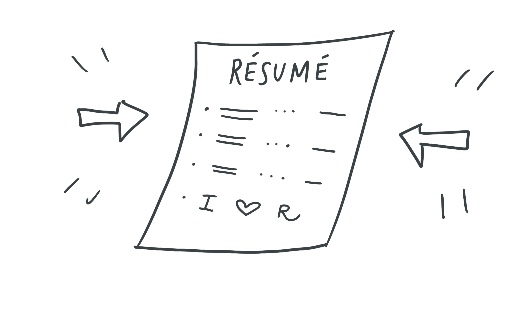 RÉSUMÉ
I ♡ R